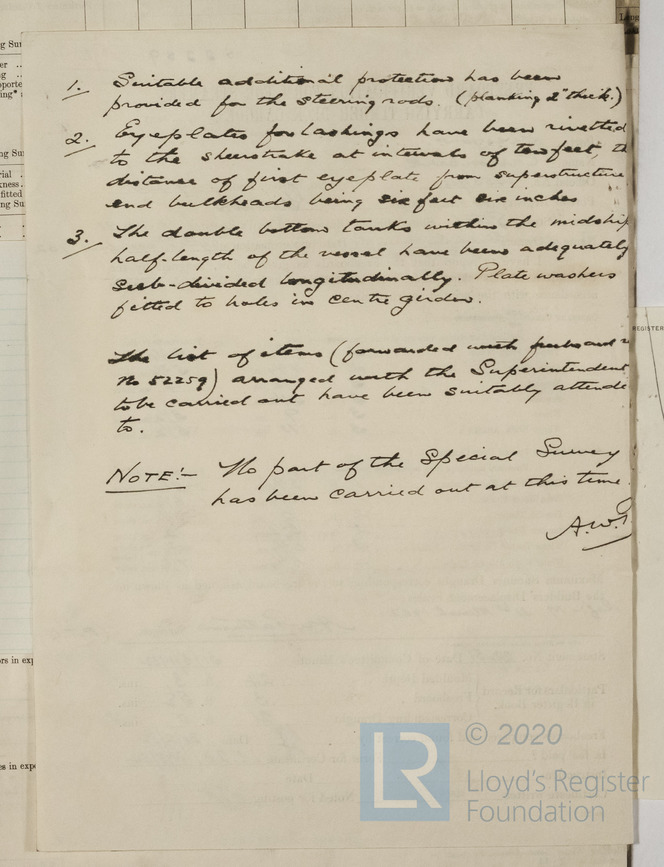 1. Suitable additional protection has been
provided for the steering rods. (planking 2" thick.)
2. Eyeplates for lashings have been rivetted
to the sheerstrake at intervals of two feet, th
distance of first eyeplate from superstructure
end bulkheads being six feet six inches
3. The double bottom tanks within the midship
half-length of the vessel have been adequately
sub-divided longitudinally. Plate washers
fitted to holes in centre girder.
The list of items (forwarded with freeboard
No 52259) arranged with the Superintendent
to be carried out have been suitably attende
to.
NOTE:- No part of the Special Survey
has been carried out at this time.
A.W.
© 2020
LR
Lloyd's Register
Foundation
REGISTER